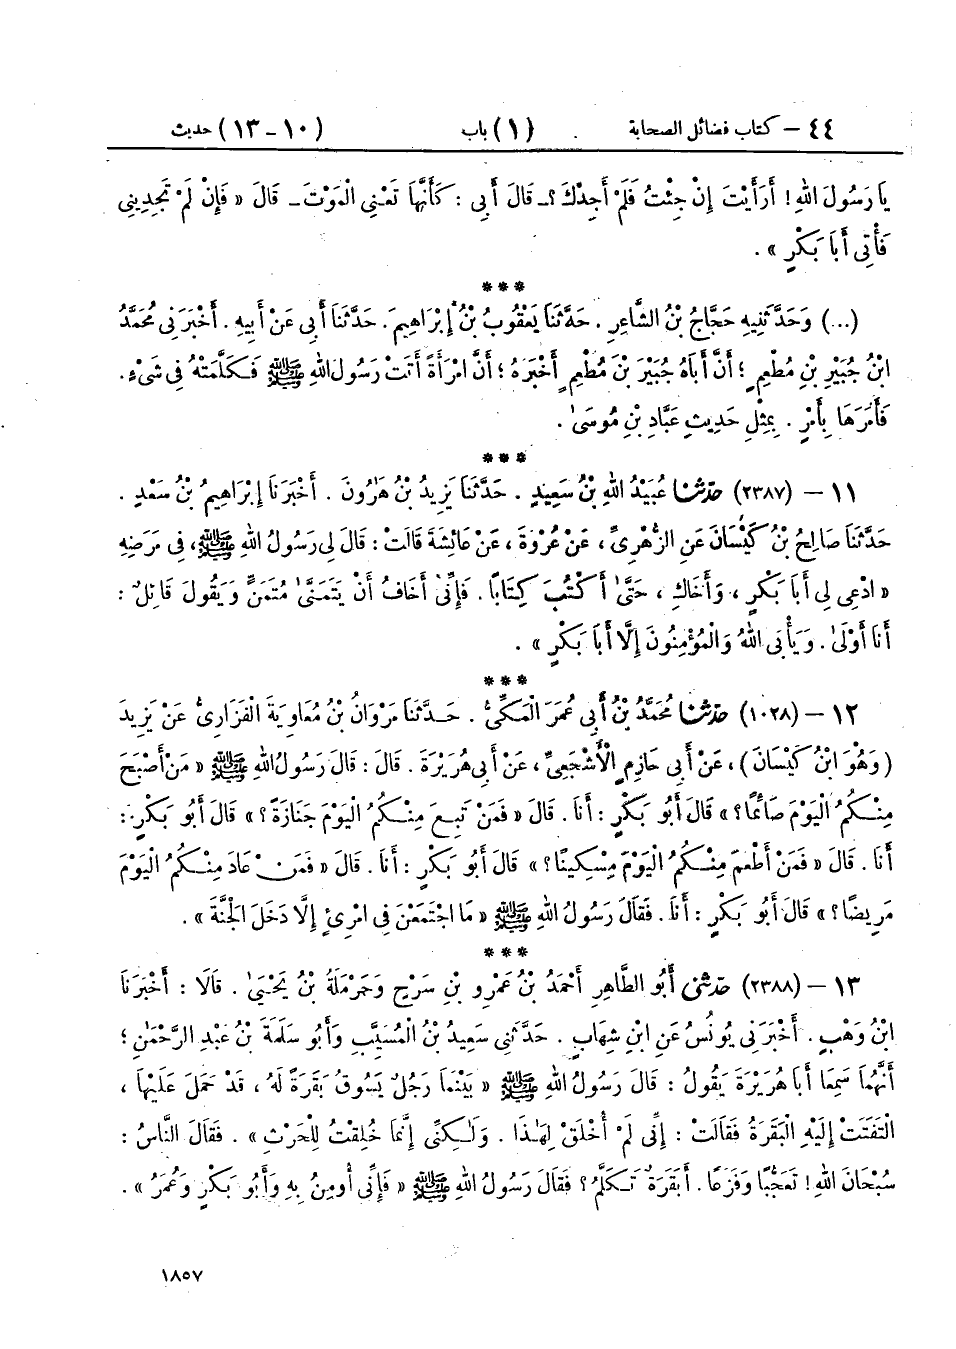 ٤٤ – كتاب فضائل الصحابة (١) باب (١٠ – ١٣) حديث
يَا رَسُولَ اللهِ! أَرَأَيْتَ إِنْ جِئْتُ فَلَمْ أَجِدْكَ؟ ـ قَالَ أَبِي : كَأَنَّهَا تَعْنِي الْمَوْتَ ـ قَالَ « فَإِنْ لَمْ تَجِدِينِي
فَأْتِي أَبَا بَكْرٍ » .
***
(...) وَحَدَّثَنِيهِ حَجَّاجُ بْنُ الشَّاعِرِ . حَدَّثَنَا يَعْقُوبُ بْنُ إِبْرَاهِيمَ . حَدَّثَنَا أَبِي عَنْ أَبِيهِ . أَخْبَرَنِي مُحَمَّدُ
ابْنُ جُبَيْرِ بْنِ مُطْعِمٍ ؛ أَنَّ أَبَاهُ جُبَيْرَ بْنَ مُطْعِمٍ أَخْبَرَهُ ؛ أَنَّ امْرَأَةً أَتَتْ رَسُولَ اللهِ ﷺ فَكَلَّمَتْهُ فِي شَيْءٍ .
فَأَمَرَهَا بِأَمْرٍ . بِمِثْلِ حَدِيثِ عَبَّادِ بْنِ مُوسَىٰ .
***
١١ – (٢٣٨٧) حَدَّثَنَا عُبَيْدُ اللهِ بْنُ سَعِيدٍ . حَدَّثَنَا يَزِيدُ بْنُ هَارُونَ . أَخْبَرَنَا إِبْرَاهِيمُ بْنُ سَعْدٍ .
حَدَّثَنَا صَالِحُ بْنُ كَيْسَانَ عَنِ الزُّهْرِيِّ ، عَنْ عُرْوَةَ ، عَنْ عَائِشَةَ قَالَتْ : قَالَ لِي رَسُولُ اللهِ ﷺ ، فِي مَرَضِهِ
« ادْعِي لِي أَبَا بَكْرٍ ، وَأَخَاكِ ، حَتَّىٰ أَكْتُبَ كِتَابًا . فَإِنِّي أَخَافُ أَنْ يَتَمَنَّىٰ مُتَمَنٍّ وَيَقُولَ قَائِلٌ :
أَنَا أَوْلَىٰ . وَيَأْبَى اللهُ وَالْمُؤْمِنُونَ إِلَّا أَبَا بَكْرٍ » .
***
١٢ – (١٠٢٨) حَدَّثَنَا مُحَمَّدُ بْنُ أَبِي عُمَرَ الْمَكِّيُّ . حَدَّثَنَا مَرْوَانُ بْنُ مُعَاوِيَةَ الْفَزَارِيُّ عَنْ يَزِيدَ
(وَهُوَ ابْنُ كَيْسَانَ) ، عَنْ أَبِي حَازِمٍ الْأَشْجَعِيِّ ، عَنْ أَبِي هُرَيْرَةَ . قَالَ : قَالَ رَسُولُ اللهِ ﷺ « مَنْ أَصْبَحَ
مِنْكُمُ الْيَوْمَ صَائِمًا ؟ » قَالَ أَبُو بَكْرٍ : أَنَا . قَالَ « فَمَنْ تَبِعَ مِنْكُمُ الْيَوْمَ جَنَازَةً ؟ » قَالَ أَبُو بَكْرٍ :
أَنَا . قَالَ « فَمَنْ أَطْعَمَ مِنْكُمُ الْيَوْمَ مِسْكِينًا ؟ » قَالَ أَبُو بَكْرٍ : أَنَا . قَالَ « فَمَنْ عَادَ مِنْكُمُ الْيَوْمَ
مَرِيضًا ؟ » قَالَ أَبُو بَكْرٍ : أَنَا . فَقَالَ رَسُولُ اللهِ ﷺ « مَا اجْتَمَعْنَ فِي امْرِئٍ إِلَّا دَخَلَ الْجَنَّةَ » .
***
١٣ – (٢٣٨٨) حَدَّثَنِي أَبُو الطَّاهِرِ أَحْمَدُ بْنُ عَمْرِو بْنِ سَرْحٍ وَحَرْمَلَةُ بْنُ يَحْيَىٰ . قَالَا : أَخْبَرَنَا
ابْنُ وَهْبٍ . أَخْبَرَنِي يُونُسُ عَنِ ابْنِ شِهَابٍ . حَدَّثَنِي سَعِيدُ بْنُ الْمُسَيَّبِ وَأَبُو سَلَمَةَ بْنُ عَبْدِ الرَّحْمٰنِ ؛
أَنَّهُمَا سَمِعَا أَبَا هُرَيْرَةَ يَقُولُ : قَالَ رَسُولُ اللهِ ﷺ « بَيْنَمَا رَجُلٌ يَسُوقُ بَقَرَةً لَهُ ، قَدْ حَمَلَ عَلَيْهَا ،
الْتَفَتَتْ إِلَيْهِ الْبَقَرَةُ فَقَالَتْ : إِنِّي لَمْ أُخْلَقْ لِهٰذَا . وَلٰكِنِّي إِنَّمَا خُلِقْتُ لِلْحَرْثِ » . فَقَالَ النَّاسُ :
سُبْحَانَ اللهِ ! تَعَجُّبًا وَفَزَعًا . أَبَقَرَةٌ تَكَلَّمُ ؟ فَقَالَ رَسُولُ اللهِ ﷺ « فَإِنِّي أُومِنُ بِهِ وَأَبُو بَكْرٍ وَعُمَرُ » .
١٨٥٧